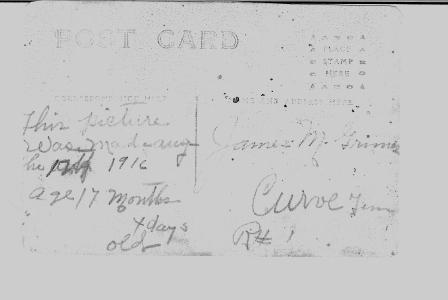 POST CARD
PLACE
STAMP
HERE
CORRESPONDENCE HERE
NAME AND ADDRESS HERE
This picture
was made aug
the 1916
age 17 months
4 days
old
James M. Grimes
Curve Tenn
R#1